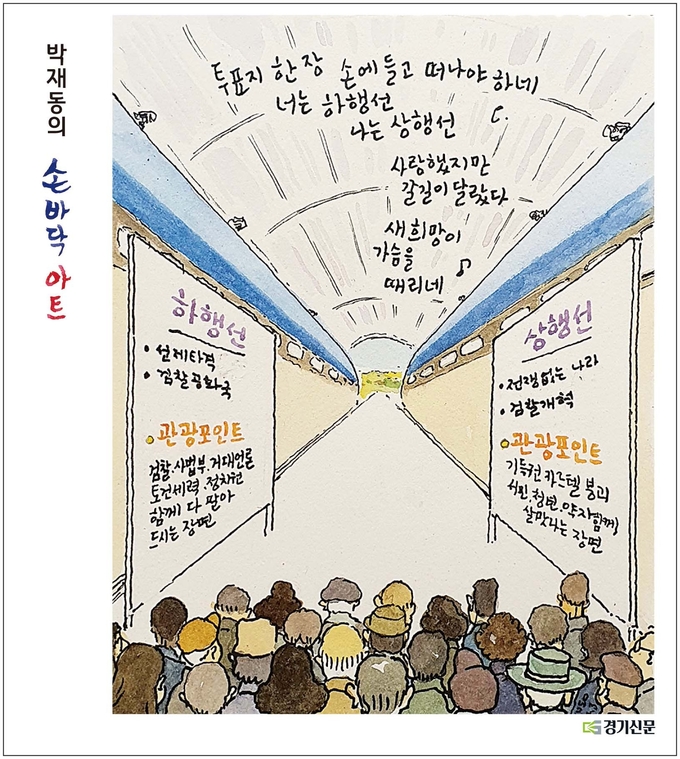 박재동의 손바닥 아트
투표지 한 장 손에 들고 떠나야 하네
너는 하행선
나는 상행선
사랑했지만
갈길이 달랐다
새 희망이
가슴을
때리네
하행선
• 선제타격
• 검찰공화국
관광포인트
검찰.사법부.거대언론
토건세력.정치권
함께 다 말아
드시는 장면
상행선
• 전쟁없는 나라
• 검찰개혁
관광포인트
기득권 카르텔 붕괴
서민.청년.약자 함께
살맛나는 장면
경기신문